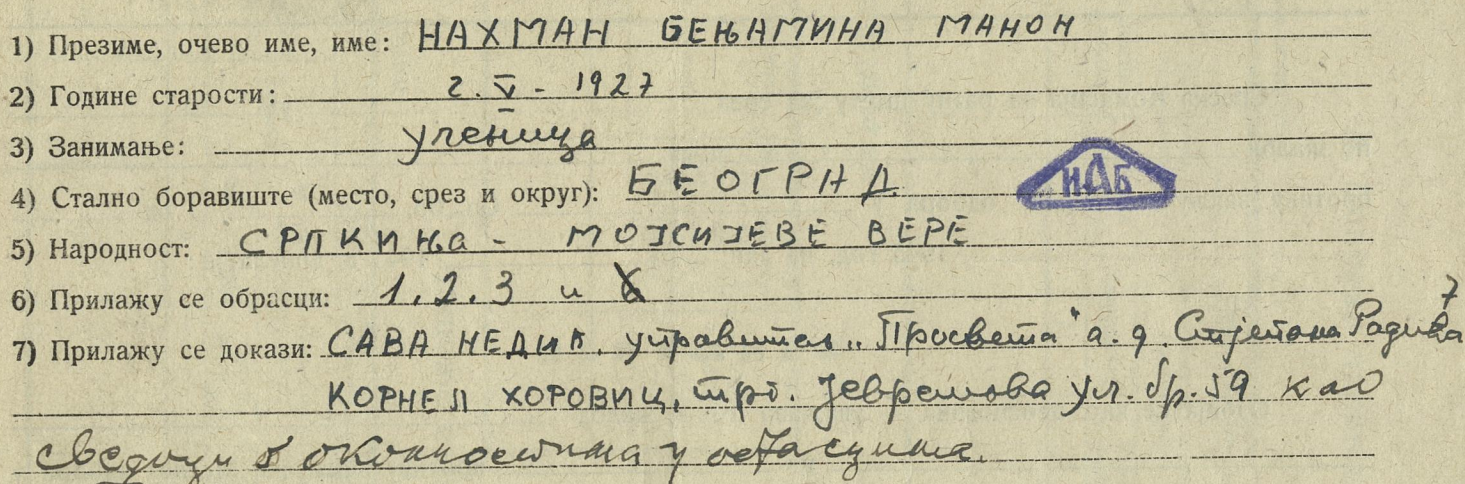 1) Презиме, очево име, име: НАХМАН БЕЊАМИНА МАНОН
2) Године старости: 2. V - 1927
3) Занимање: ученица
4) Стално боравиште (место, срез и округ): БЕОГРАД
НАБ
5) Народност: СРПКИЊа - МОЈСИЈЕВЕ ВЕРЕ
6) Прилажу се обрасци: 1.2.3 и
7
7) Прилажу се докази: САВА НЕДИЋ, управитељ „Просвета" а. д. Стјепана Радића
КОРНЕЛ ХОРОВИЦ, трг. Јевремова ул. бр. 59 као
сведоци о околностима у обрасцима.